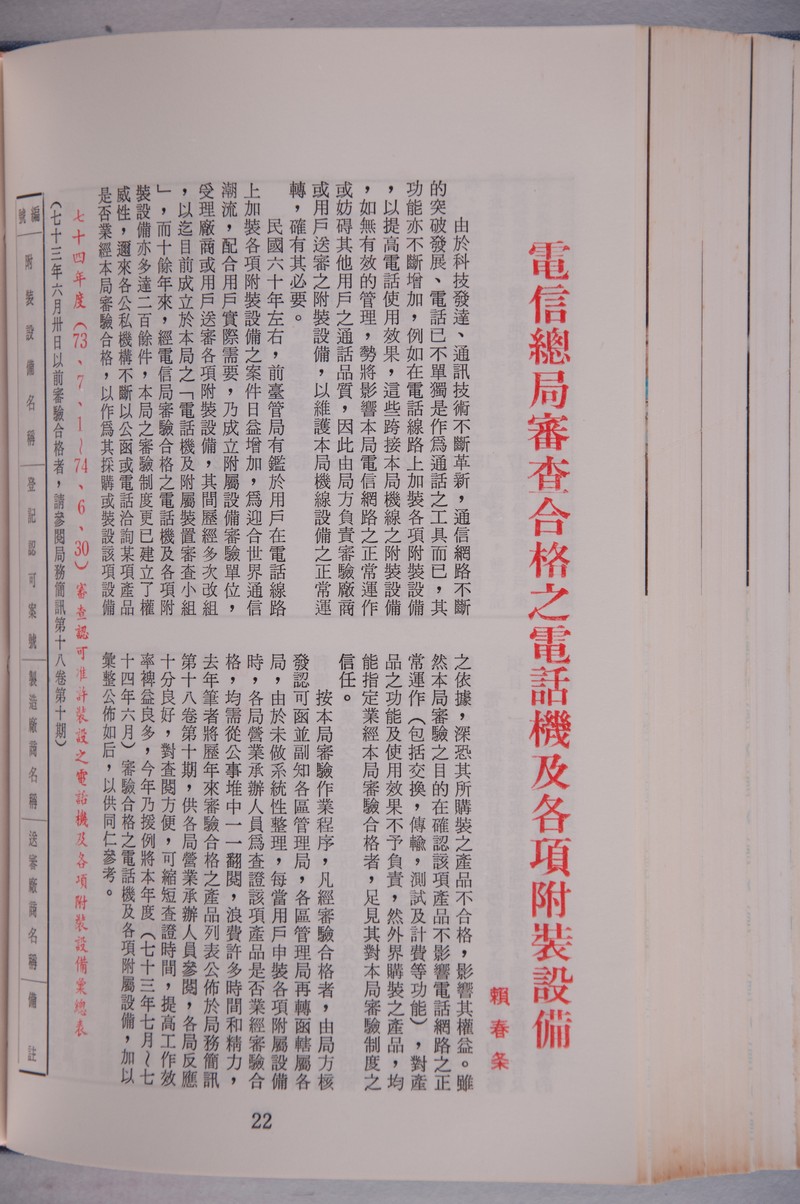 電信總局審查合格之電話機及各項附裝設備
賴春条
由於科技發達、通訊技術不斷革新，通信網路不斷
的突破發展、電話已不單獨是作爲通話之工具而已，其
功能亦不斷增加，例如在電話線路上加裝各項附裝設備
，以提高電話使用效果，這些跨接本局機線之附裝設備
，如無有效的管理，勢將影響本局電信網路之正常運作
或妨碍其他用戶之通話品質，因此由局方負責審驗廠商
或用戶送審之附裝設備，以維護本局機線設備之正常運
轉，確有其必要。
民國六十年左右，前臺管局有鑑於用戶在電話線路
上加裝各項附裝設備之案件日益增加，爲迎合世界通信
潮流，配合用戶實際需要，乃成立附屬設備審驗單位，
受理廠商或用戶送審各項附裝設備，其間歷經多次改組
，以迄目前成立於本局之「電話機及附屬裝置審查小組
」，而十餘年來，經電信局審驗合格之電話機及各項附
裝設備亦多達二百餘件，本局之審驗制度更已建立了權
威性，邇來各公私機構不斷以公函或電話洽詢某項產品
是否業經本局審驗合格，以作爲其採購或裝設該項設備
之依據，深恐其所購裝之產品不合格，影響其權益。雖
然本局審驗之目的在確認該項產品不影響電話網路之正
常運作（包括交換，傳輸，測試及計費等功能），對產
品之功能及使用效果不予負責，然外界購裝之產品，均
能指定業經本局審驗合格者，足見其對本局審驗制度之
信任。
按本局審驗作業程序，凡經審驗合格者，由局方核
發認可函並副知各區管理局，各區管理局再轉函轄屬各
局，由於未做系統性整理，每當用戶申裝各項附屬設備
時，各局營業承辦人員爲查證該項產品是否業經審驗合
格，均需從公事堆中一一翻閱，浪費許多時間和精力，
去年筆者將歷年來審驗合格之產品列表公佈於局務簡訊
第十八卷第十期，供各局營業承辦人員參閱，各局反應
十分良好，對查閱方便，可縮短查證時間，提高工作效
率裨益良多，今年乃援例將本年度（七十三年七月～七
十四年六月）審驗合格之電話機及各項附屬設備，加以
彙整公佈如后，以供同仁參考。
七十四年度（73、7、1～74、6、30）審查認可准許裝設之電話機及各項附裝設備彙總表
（七十三年六月卅日以前審驗合格者，請參閱局務簡訊第十八卷第十期）
編號 附裝設備名稱 登記認可案號 製造廠商名稱 送審廠商名稱 備註
22